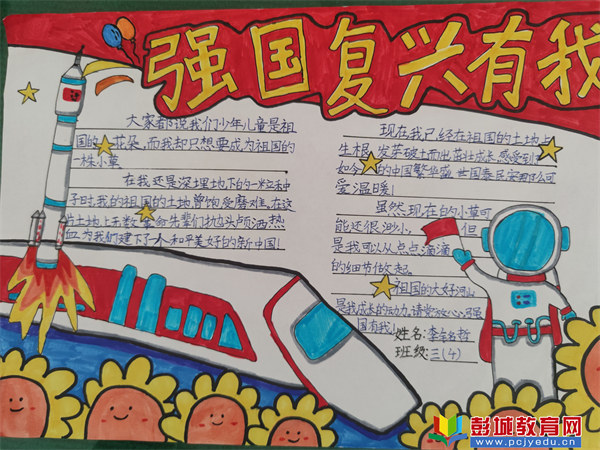 强国复兴有我
大家都说我们少年儿童是祖
国的花朵,而我却只想要成为祖国的
一株小草
在我还是深埋地下的一粒种
子时,我的祖国的土地曾饱受磨难,在这
片土地上无数革命先辈们抛头颅洒热
血,为我们建下了一个和平美好的新中国!
现在我已经在祖国的土地上
生根,发芽破土而出茁壮成长,感受到了
如今的中国繁华盛世国泰民安那么可
爱温暖!
虽然,现在的小草可
能还很渺小,但
是我可以从点点滴滴
的细节做起。
祖国的大好河山
是我成长的动力,请党放心,强
国有我!
姓名:李
班级:三(4)
彭城教育网
www.pcjyedu.cn